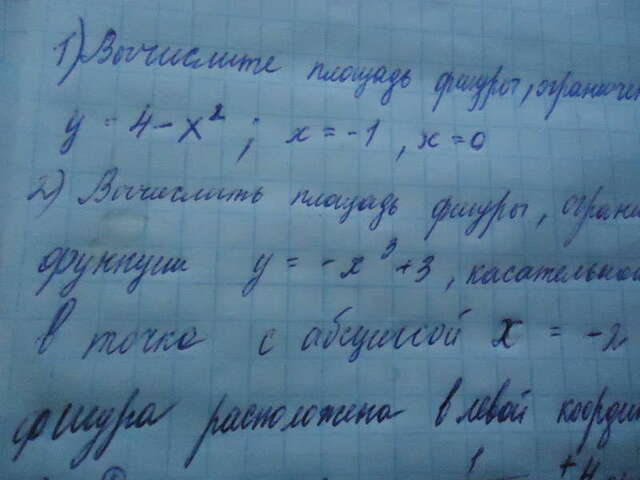 1) Вычислите площадь фигуры, ограничен
y = 4 - x² ; x = -1 , x = 0
2) Вычислить площадь фигуры, ограни
функции y = -x³ + 3 , касательной
в точке с абсциссой x = -2
фигура расположена в левой коорди
1 + 4